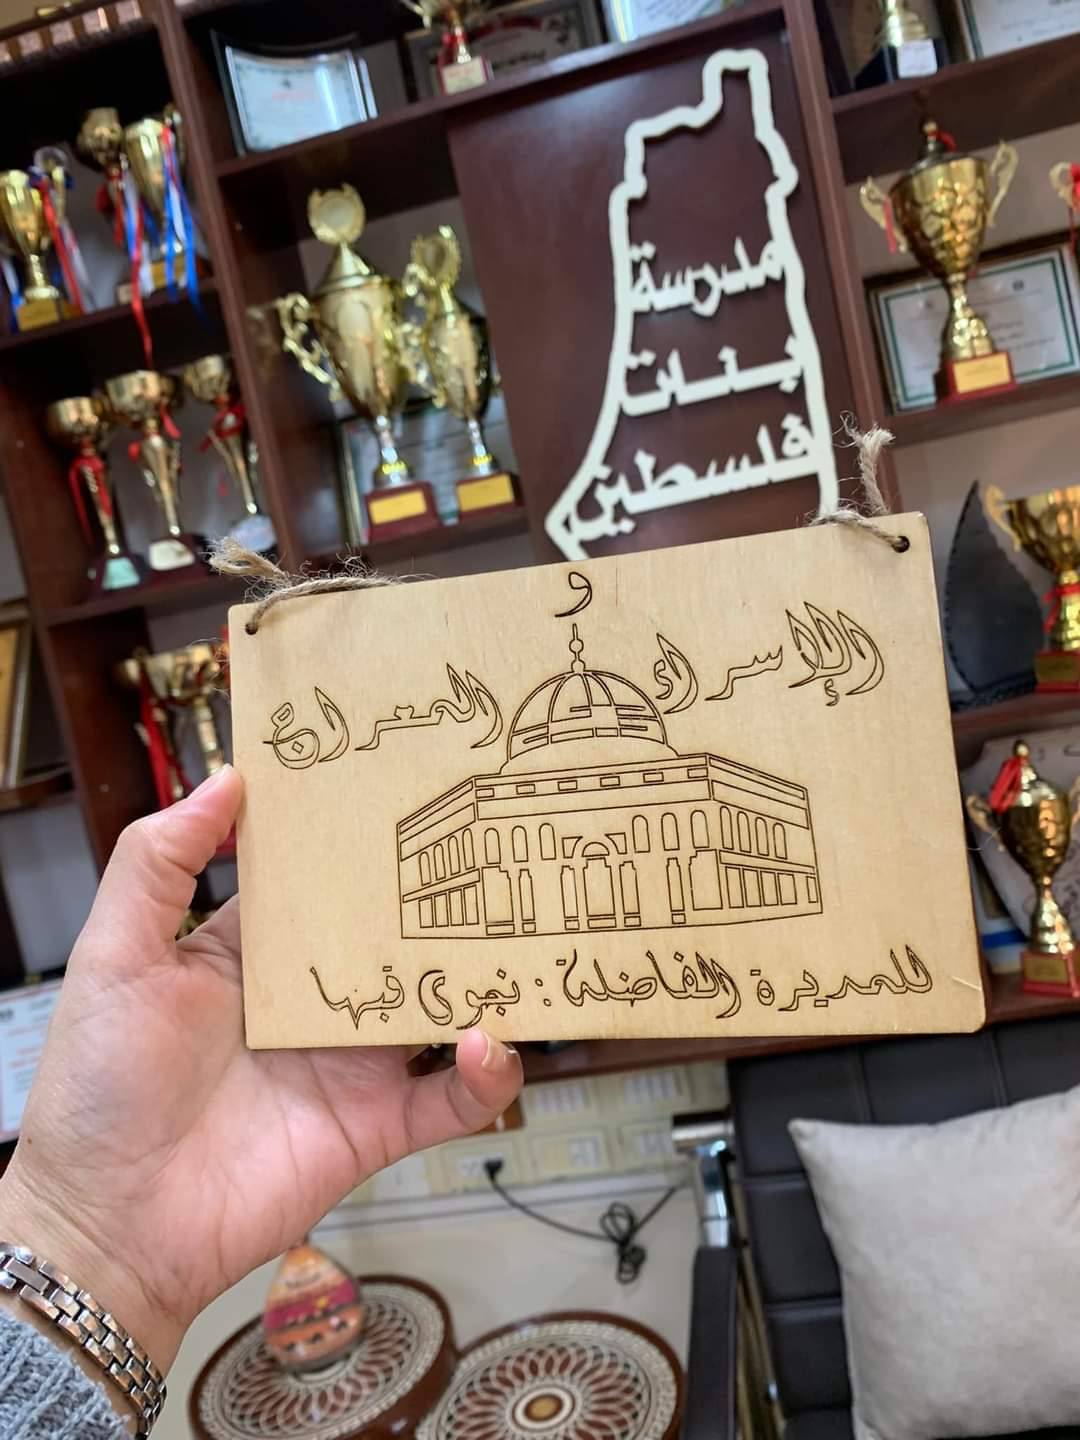 مدرسة
بنات
فلسطين
الإسراء و المعراج
للمديرة الفاضلة : نجوى قبها